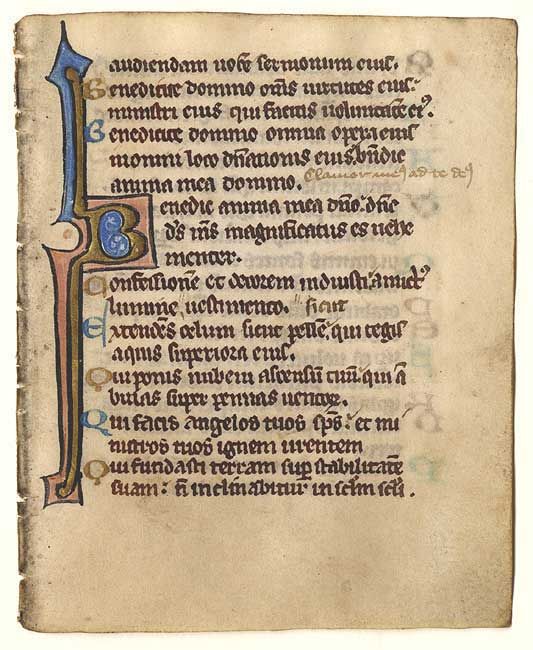 audiendam uocē sermonum eius.
Benedicite domino om̄s uirtutes eius·
ministri eius qui facitis uoluntatē eiꝰ.
Benedicite domino omnia opera eius
in omni loco dn̄ationis eius bn̄dic
anima mea domino. Clamor meꝰ ad te
Benedic anima mea dn̄o· dn̄e
dꝰ mꝰ magnificatus es uehe
menter.
Confessionē et decorem induisti· amictꝰ
lumine uestimento. sicut
Extendēs celum sicut pellē· qui tegis
aquis superiora eius.
Qui ponis nubem ascensū tuū· qui ā
bulas super pennas uentoꝝ.
Qui facis angelos tuos sp̄s· et mi
nistros tuos ignem urentem
Qui fundasti terram sup stabilitatē
suam· n̄ inclinabitur in sc̄lm sc̄li.